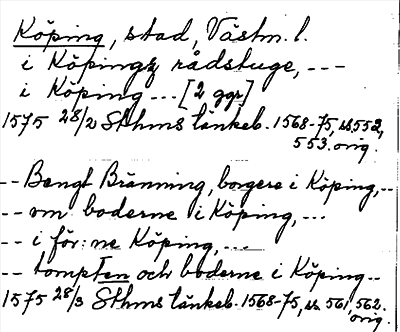 Köping, stad, Västm. l.
i Köpingz rådstuge, ---
i Köping --- [2 ggr]
1575 28/2 Sthms tänkeb. 1568-75, s. 552,
553. orig.
-- Bengt Bränning, borgere i Köping, --
-- om boderne i Köping, ---
-- i för:ne Köping, ---
-- tompten och boderne i Köping --
1575 28/3 Sthms tänkeb. 1568-75, s. 561, 562.
orig.